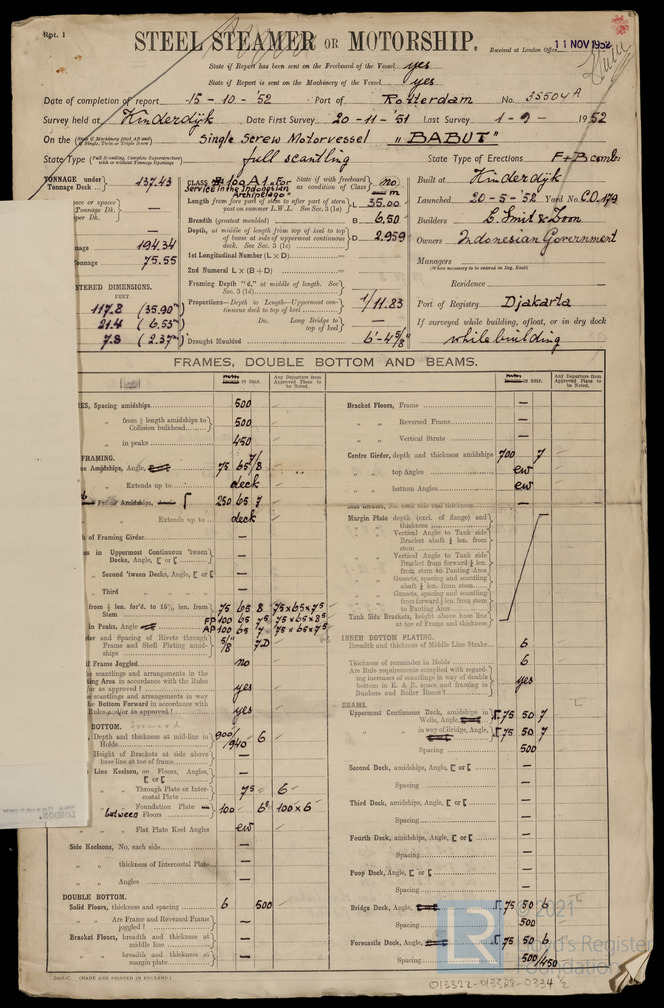 Rpt. 1
STEEL STEAMER OR MOTORSHIP.
Received at London Office 11 NOV 1952
State if Report has been sent on the Freeboard of the Vessel yes
State if Report is sent on the Machinery of the Vessel yes
Date of completion of report 15-10-'52 Port of Rotterdam No. 35504A
Survey held at Kinderdijk Date First Survey 20-11-'51 Last Survey 1-9- 1952
On the (State if Machinery fitted Aft and if Single, Twin or Triple Screw) Single Screw Motorvessel "BABUT"
State Type (Full Scantling, Complete Superstructure with or without Tonnage Openings) full scantling State Type of Erections F+B comb:
TONNAGE under Tonnage Deck ... 137.43
194.34
75.55
STERED DIMENSIONS.
FEET
117.8 (35.90m)
21.4 (6.53m)
7.8 (2.37m)
CLASS ✠100A1 "For Service in the Indonesian Archipelago" State if with freeboard as condition of Class no
m
Length from fore part of stem to after part of stern post on summer L.W.L. See Sec. 3 (1a) L 35.00
Breadth (greatest moulded) B 6.50
Depth, at middle of length from top of keel to top of beam at side of uppermost continuous deck. See Sec. 3 (1c) D 2.959
1st Longitudinal Number (L × D) =
2nd Numeral L × (B + D) =
Framing Depth "d," at middle of length. See Sec. 3 (1d) —
Proportions—Depth to Length—Uppermost continuous deck to top of keel 1/11.83
Do. Long Bridge to top of keel —
Draught Moulded 6'-4 5/8"
Built at Kinderdijk
Launched 20-5-'52 Yard No. C.O. 179
Builders L. Smit & Zoon
Owners Indonesian Government
Managers
(Where necessary to be entered in Reg. Book)
Residence —
Port of Registry Djakarta
If surveyed while building, afloat, or in dry dock
while building
FRAMES, DOUBLE BOTTOM AND BEAMS.
IN SHIP.
Any Departure from Approved Plans to be Noted.
IN SHIP.
Any Departure from Approved Plans to be Noted.
ES, Spacing amidships 500
from ⅕ length amidships to Collision bulkhead 500
in peaks 450
FRAMING.
Amidships, Angle, 75 65 7/8
Extends up to deck
Frame Amidships, 250 65 7
Extends up to deck
h of Framing Girder —
in Uppermost Continuous 'tween Decks, Angle, [ or [ —
Second 'tween Decks, Angle, [ or [ —
Third —
from ⅕ len. for'd. to 15% len. from Stem 75 65 8 75×65×75
in Peaks, Angle FP 100 65 75 75×65×85
AP 100 65 7 75×65×75
ter and Spacing of Rivets through Frame and Shell Plating amidships 5/8" 7D
if Frame Joggled no
scantlings and arrangements in ting Area in accordance with the Rules /or as approved? yes
scantlings and arrangements in way Bottom Forward in accordance with Rules and/or as approved? yes
BOTTOM.
Depth and thickness at mid-line in Holds 900/940 6
Height of Brackets at side above base line at toe of frame —
Line Keelson, on Floors, Angles, [ or [ —
Through Plate or Intercostal Plate 75 6
Foundation Plate between Floors 100 100×6
Flat Plate Keel Angles ew
Side Keelsons, No. each side —
thickness of Intercostal Plate —
Angles —
DOUBLE BOTTOM.
Solid Floors, thickness and spacing 6 500
Are Frame and Reversed Frame joggled? —
Bracket Floors, breadth and thickness at middle line —
breadth and thickness at margin plate —
Bracket Floors, Frame —
Reversed Frame —
Vertical Struts —
Centre Girder, depth and thickness amidships 700 7
top Angles ew
bottom Angles ew
Side Girders, No. each side and thickness —
Margin Plate depth (excl. of flange) and thickness
Vertical Angle to Tank side Bracket abaft ¼ len. from stem
Vertical Angle to Tank side Bracket from forward ¼ len. from stem to Panting Area
Gussets, spacing and scantling abaft ¼ len. from stem
Gussets, spacing and scantling from forward ¼ len. from stem to Panting Area
Tank Side Brackets, height above base line at toe of Frame and thickness
INNER BOTTOM PLATING.
Breadth and thickness of Middle Line Strake 6
Thickness of remainder in Holds 6
Are Rule requirements complied with regarding increases of scantlings in way of double bottom in E. & B. space and framing in Bunkers and Boiler Room? yes
BEAMS.
Uppermost Continuous Deck, amidships in Wells, Angle, 75 50 7
in way of Bridge, Angle, 75 50 7
Spacing 500
Second Deck, amidships, Angle, [ or [
Spacing
Third Deck, amidships, Angle, [ or [
Spacing
Fourth Deck, amidships, Angle, [ or [
Spacing
Poop Deck, Angle, [ or [
Spacing
Bridge Deck, Angle, 75 50 6
Spacing 500
Forecastle Deck, Angle, 75 50 6
Spacing 500/450
(MADE AND PRINTED IN ENGLAND.)
LR © 2021
Lloyd's Register
Foundation
013322-013328-0334 ½
LONDON.